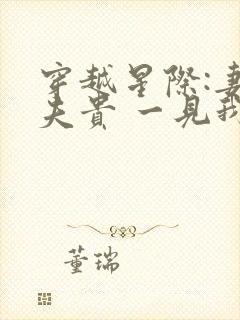 穿越星際:妻
夫貴 一見我
董瑞